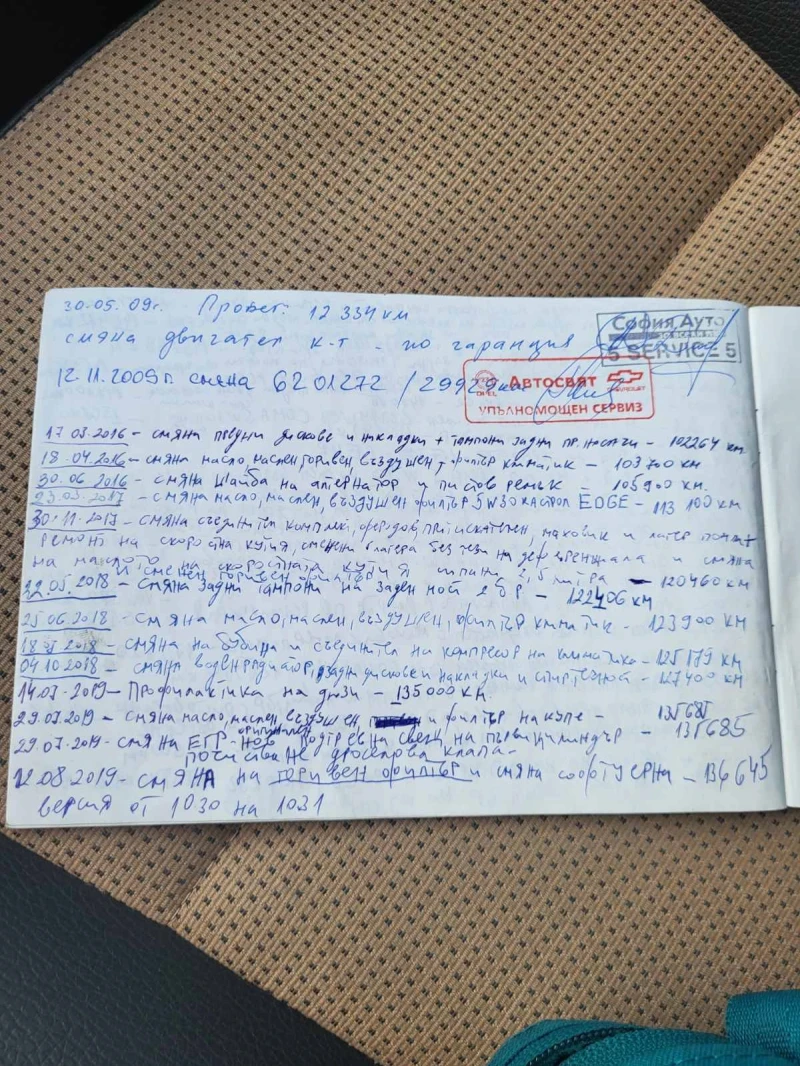 30.05.09г. Пробег: 12 334 км
смяна двигател к-т - по гаранция
София Ауто
5 SERVICE 5
12.11.2009г. смяна 6201272 / 29929 км
OPEL Автосвят CHEVROLET
УПЪЛНОМОЩЕН СЕРВИЗ
17.03.2016 - смяна предни дискове и накладки + тампони задни - 102264 км
18.04.2016 - смяна масло, маслен, горивен, въздушен + филтър климатик - 103700 км
30.06.2016 - смяна шайба на алтернатор и пистов ремък - 105900 км.
23.03.2017 - смяна масло, маслен, въздушен филтър 5W30 кастрол EDGE - 113 100 км
30.11.2017 - смяна съединител комплект, феродов, притискателен, маховик и лагер помпа +
ремонт на скоростна кутия, сменени 2 лагера без тези на деференциала и смяна
на маслото на скоростната кутия 2,5 литра - 120460 км
и сменен горивен филтър
22.05.2018 - смяна задни тампони на заден мост 2 бр - 122406 км
25.06.2018 - смяна масло, маслен, въздушен, филтър климатик - 123900 км
18.07.2018 - смяна на бубина и съединител на компресор на климатика - 125179 км
04.10.2018 - смяна воден радиатор, задни дискове и накладки и спир. течност - 127400 км
14.07.2019 - Профилактика на дюзи - 135000 км.
29.07.2019 - смяна масло, маслен, въздушен, и филтър на купе - 135685
29.07.2019 - смяна ЕГР - нов оригинален, подгревна свещ на първи цилиндър - 135685
почистване дроселова клапа
12.08.2019 - смяна на горивен филтър и смяна софтуерна - 136645
версия от 1030 на 1031